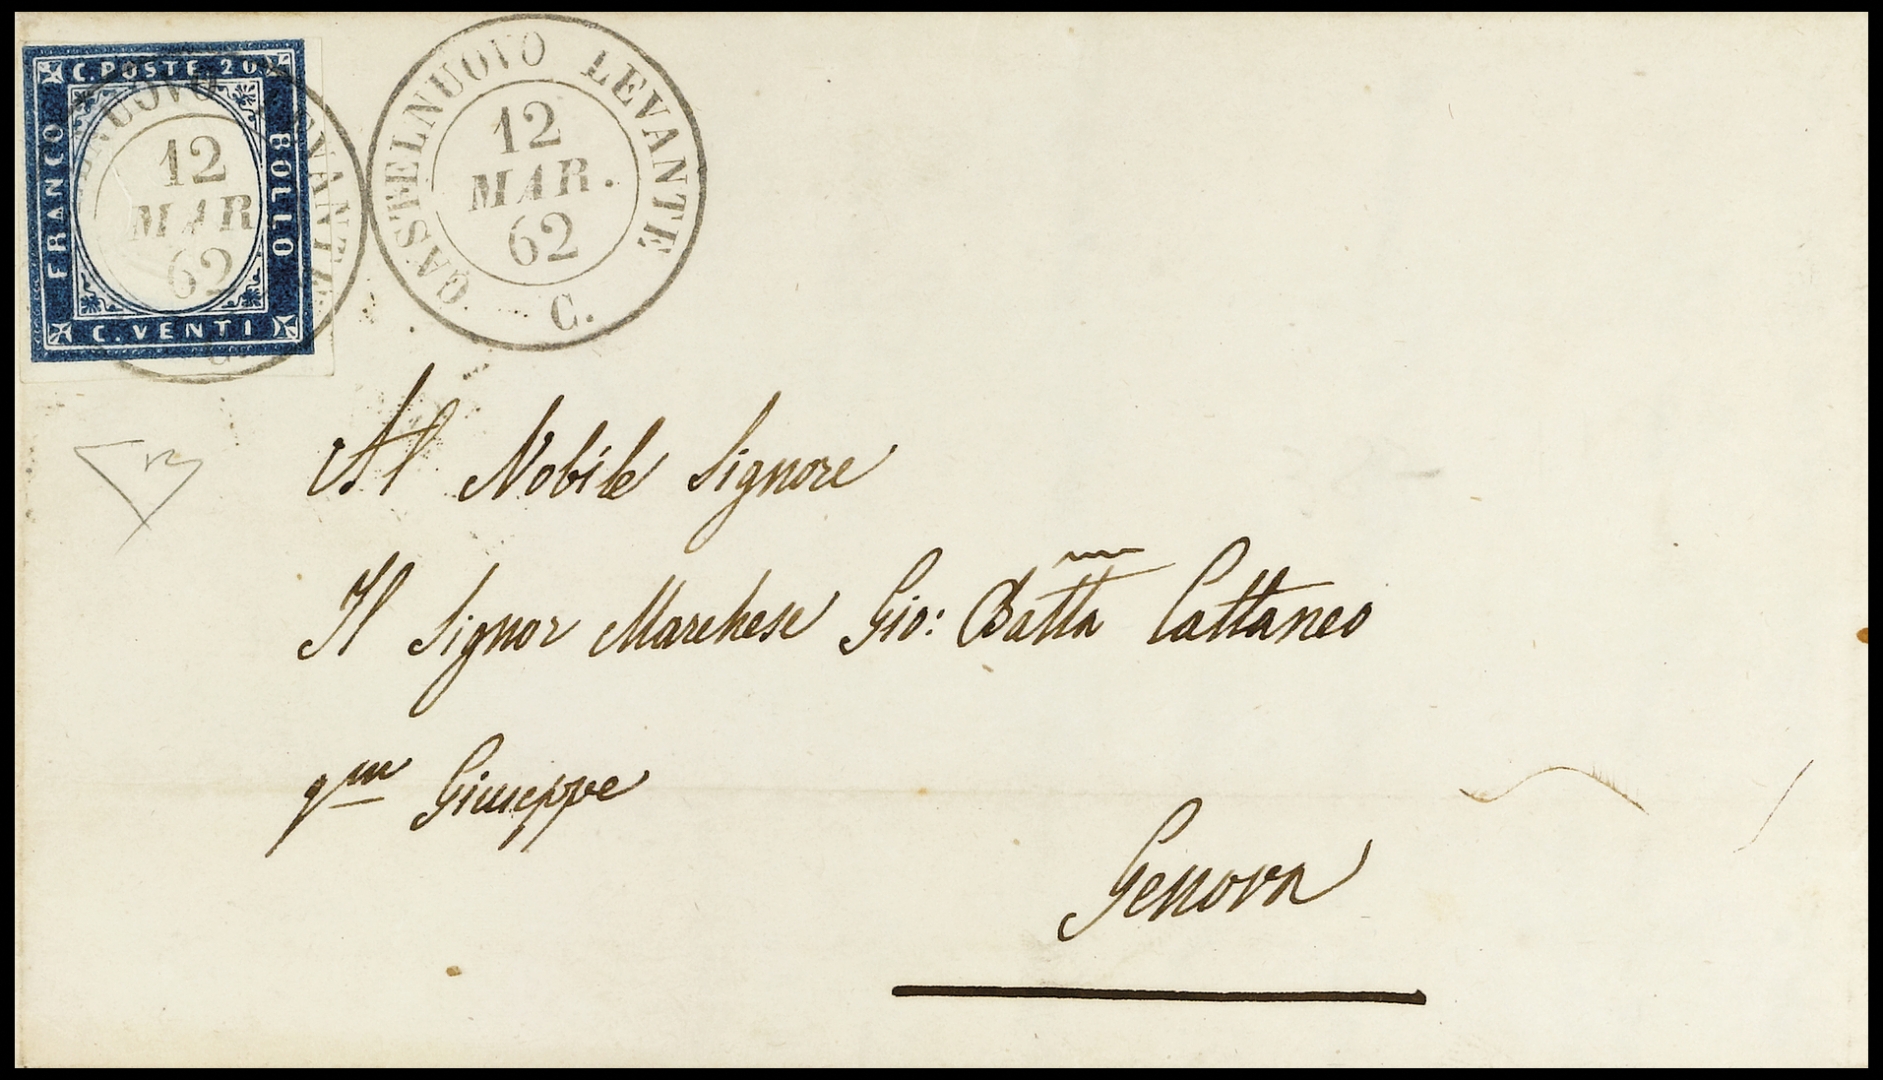 C. POSTE 20
FRANCO
BOLLO
C. VENTI
12
MAR
62
C.
CASTELNUOVO LEVANTE
12
MAR.
62
C.
Al Nobile Signore
Il Signor Marchese Gio: Batta Cattaneo
qm Giuseppe
Genova